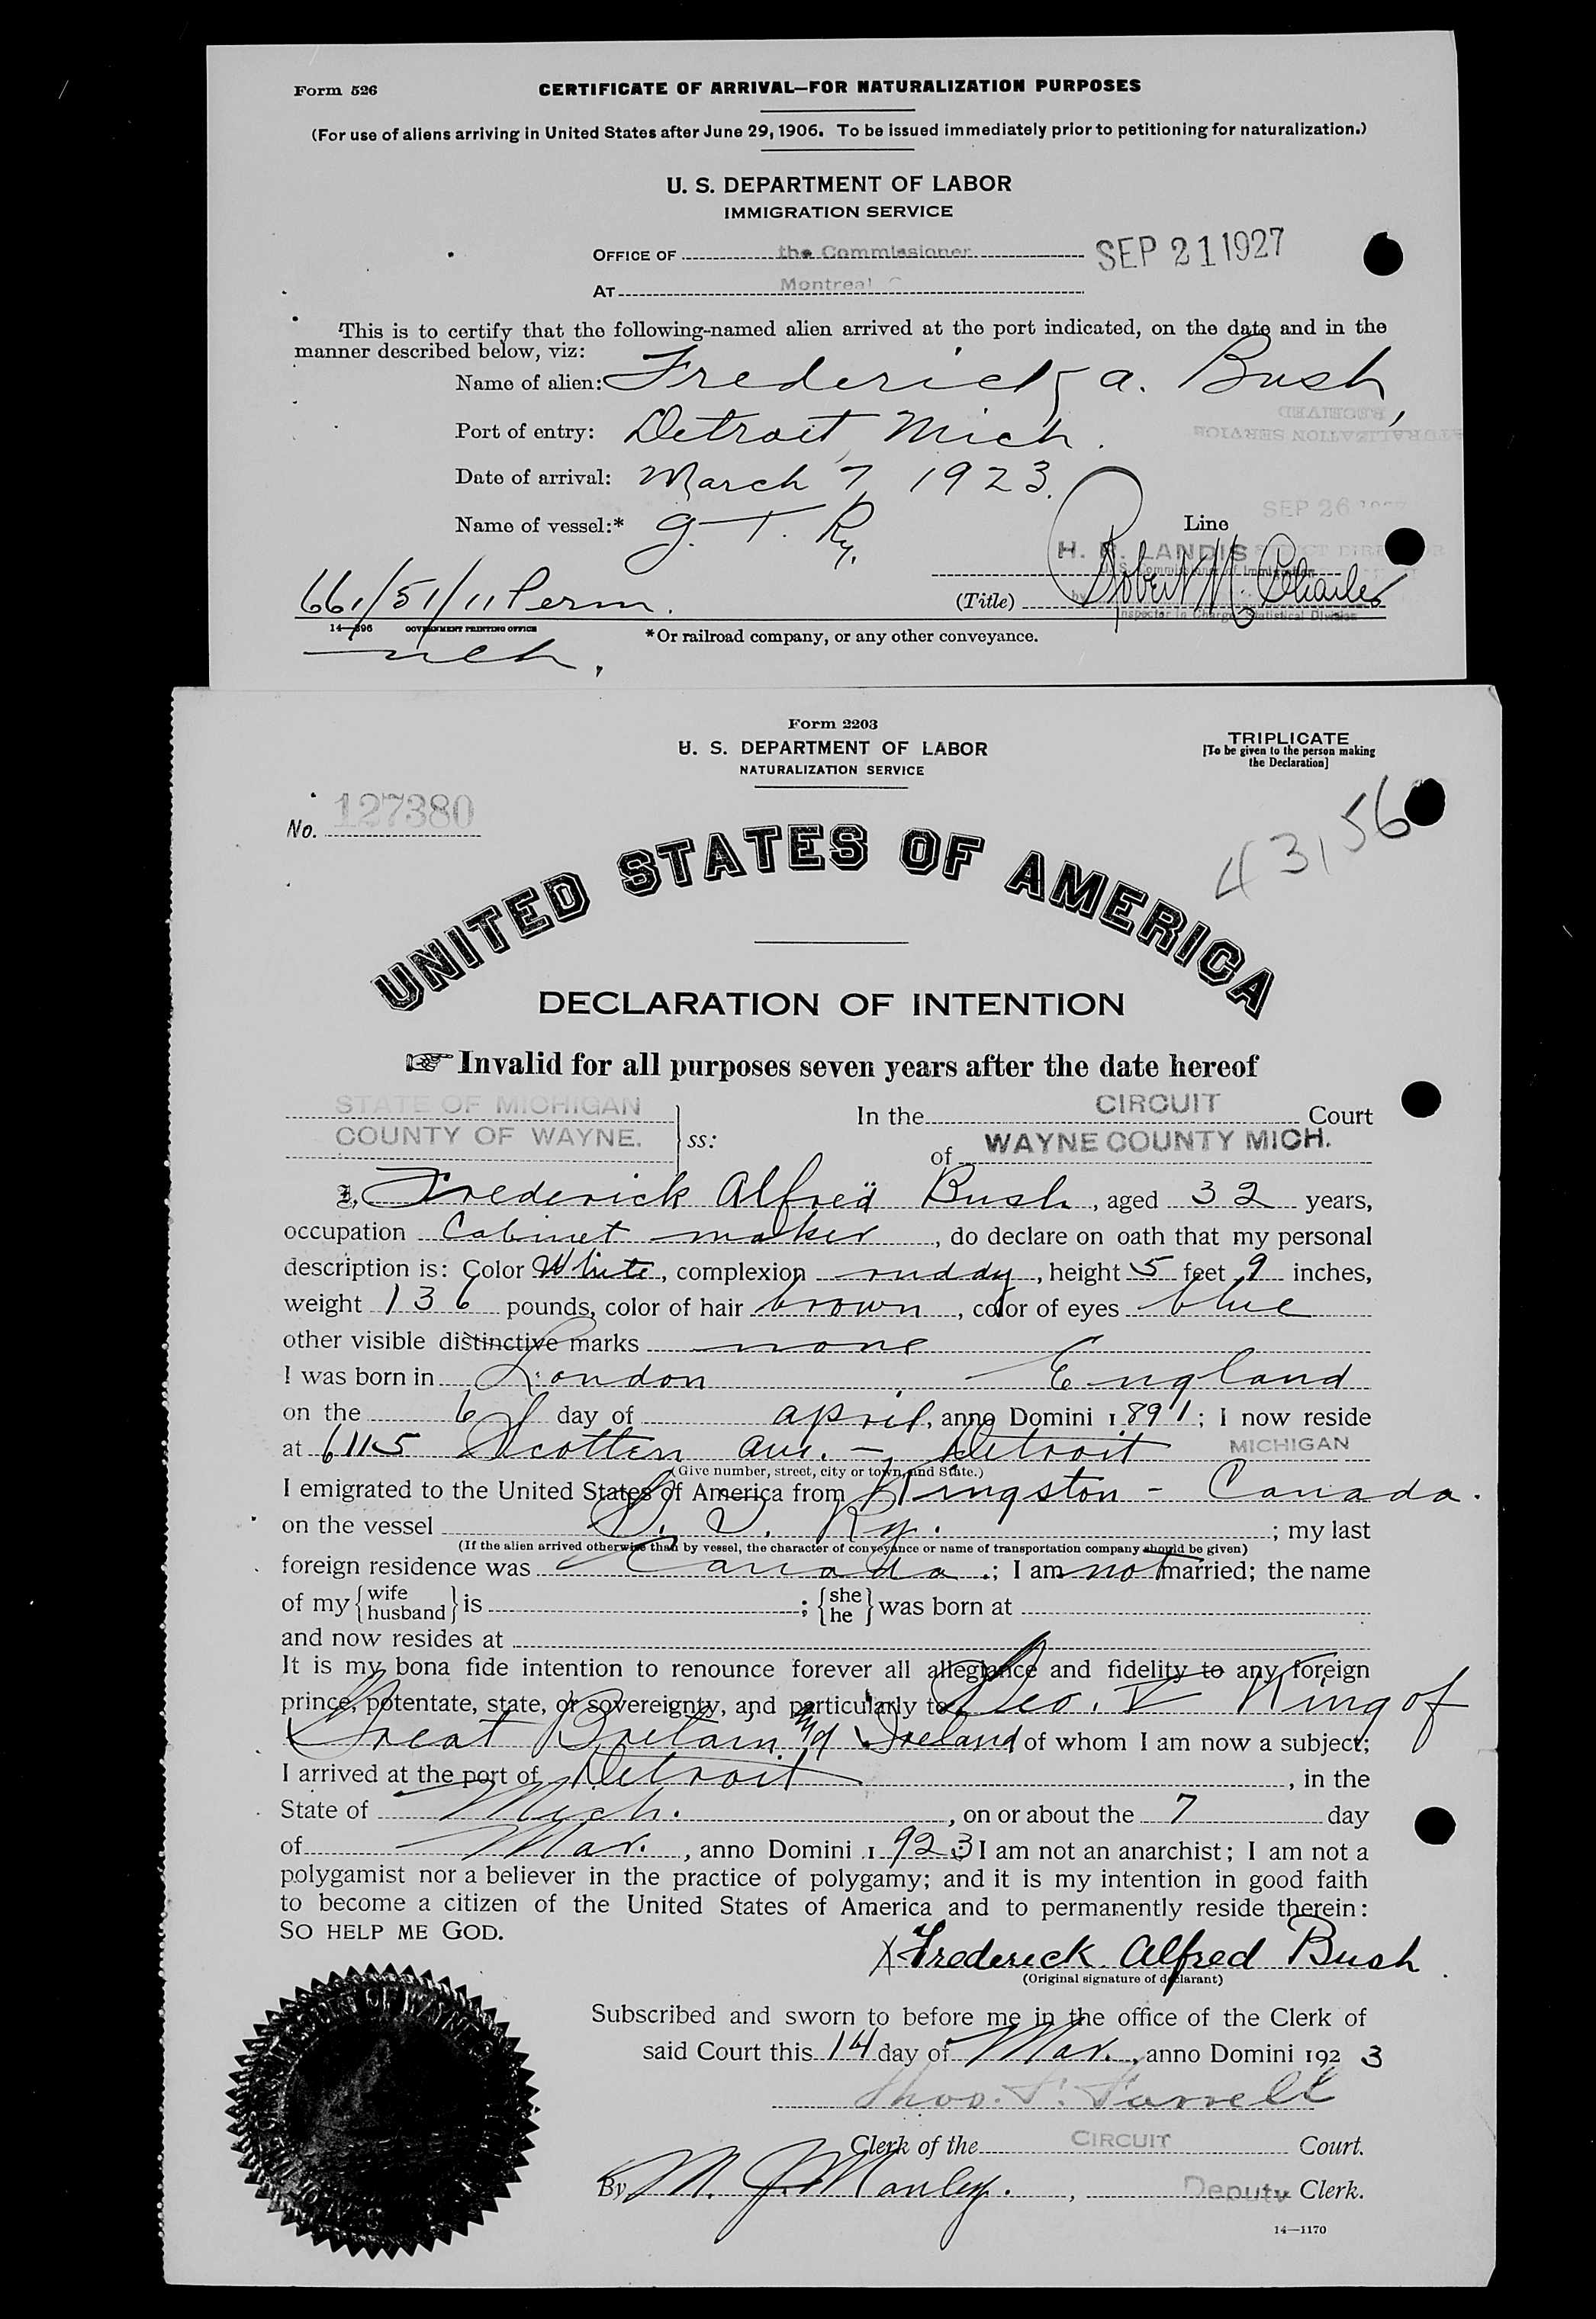 Form 526
CERTIFICATE OF ARRIVAL—FOR NATURALIZATION PURPOSES
(For use of aliens arriving in United States after June 29, 1906. To be issued immediately prior to petitioning for naturalization.)
U. S. DEPARTMENT OF LABOR
IMMIGRATION SERVICE
OFFICE OF the Commissioner SEP 21 1927
AT Montreal
This is to certify that the following-named alien arrived at the port indicated, on the date and in the
manner described below, viz:
Name of alien: Frederick A. Bush,
RECEIVED
Port of entry: Detroit, Mich.
NATURALIZATION SERVICE
Date of arrival: March 7, 1923.
SEP 26
Name of vessel:* G. T. Ry. Line
H. R. LANDIS
U. S. Commissioner of Immigration
661/51/11 Perm. (Title) by Robert H.
Inspector in Charge, Statistical Division
14—396 GOVERNMENT PRINTING OFFICE
*Or railroad company, or any other conveyance.
Form 2203
U. S. DEPARTMENT OF LABOR
NATURALIZATION SERVICE
TRIPLICATE
[To be given to the person making
the Declaration]
No. 127380
43156
UNITED STATES OF AMERICA
DECLARATION OF INTENTION
☞ Invalid for all purposes seven years after the date hereof
STATE OF MICHIGAN In the CIRCUIT Court
COUNTY OF WAYNE. ss: of WAYNE COUNTY MICH.
I, Frederick Alfred Bush, aged 32 years,
occupation Cabinet maker, do declare on oath that my personal
description is: Color White, complexion ruddy, height 5 feet 9 inches,
weight 136 pounds, color of hair brown, color of eyes blue
other visible distinctive marks none
I was born in London, England
on the 6 day of April, anno Domini 1891; I now reside
at 6115 Scotten Ave. - Detroit MICHIGAN
(Give number, street, city or town, and State.)
I emigrated to the United States of America from Kingston - Canada.
on the vessel G. T. Ry.; my last
(If the alien arrived otherwise than by vessel, the character of conveyance or name of transportation company should be given)
foreign residence was Canada.; I am not married; the name
of my { wife husband } is ; { she he } was born at
and now resides at
It is my bona fide intention to renounce forever all allegiance and fidelity to any foreign
prince, potentate, state, or sovereignty, and particularly to Geo. V King of
Great Britain and Ireland of whom I am now a subject;
I arrived at the port of Detroit, in the
State of Mich., on or about the 7 day
of Mar., anno Domini 1923; I am not an anarchist; I am not a
polygamist nor a believer in the practice of polygamy; and it is my intention in good faith
to become a citizen of the United States of America and to permanently reside therein:
SO HELP ME GOD.
X Frederick Alfred Bush
(Original signature of declarant)
Subscribed and sworn to before me in the office of the Clerk of
said Court this 14 day of Mar., anno Domini 1923
Thos. F. Farrell
Clerk of the CIRCUIT Court.
By M. J. Manley., Deputy Clerk.
14—1170